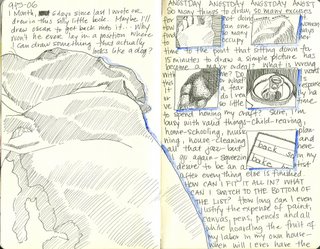 9-5-06
1 Month, 5 days since last I wrote or
drew in this silly little book. Maybe I'll
draw oscar to get back into it. Why
won't he ever lay in a position where
I can draw something that actually
looks like a dog?
ANGSTDAY ANGSTDAY ANGSTDAY ANGST
So many things to draw. So many excuses
for not doing
so many
occupy
time to the point that sitting down for
15 minutes to draw a simple picture has
become a
What is wrong
with
what
a fear,
so little
to spend honing my craft? Sure, I'm
busy with valid things- child-rearing,
home-schooling, music
and
ing, house-cleaning
all that jazz- but
go again - squeezing
desire to be an
my
first
after every thing else is finished.
HOW CAN I FIT IT ALL IN? WHAT
CAN I SWITCH TO THE BOTTOM OF
THE LIST? How long can I even
justify the expense of paint,
canvas, pens, pencils and all
while hoarding the fruit of
my labor in my own house-
when will I ever have the